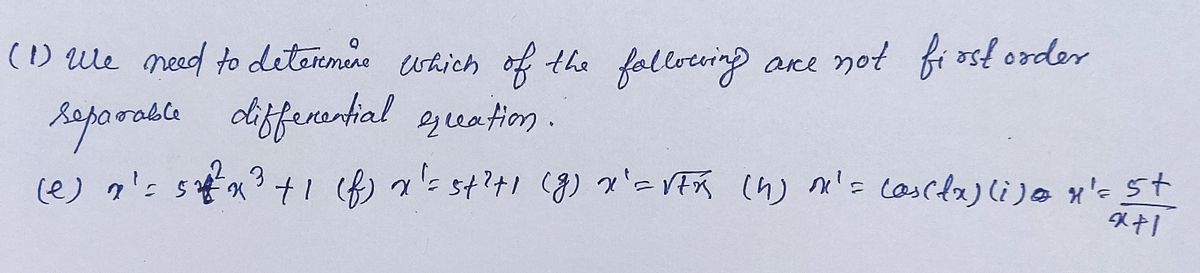 (1) We need to determine which of the following are not first order
separable differential equation.
(e) x' = 5t²x³ + 1 (f) x' = 5t²+1 (g) x' = √tx (h) x' = cos(tx) (i) x' = 5t/(x+1)